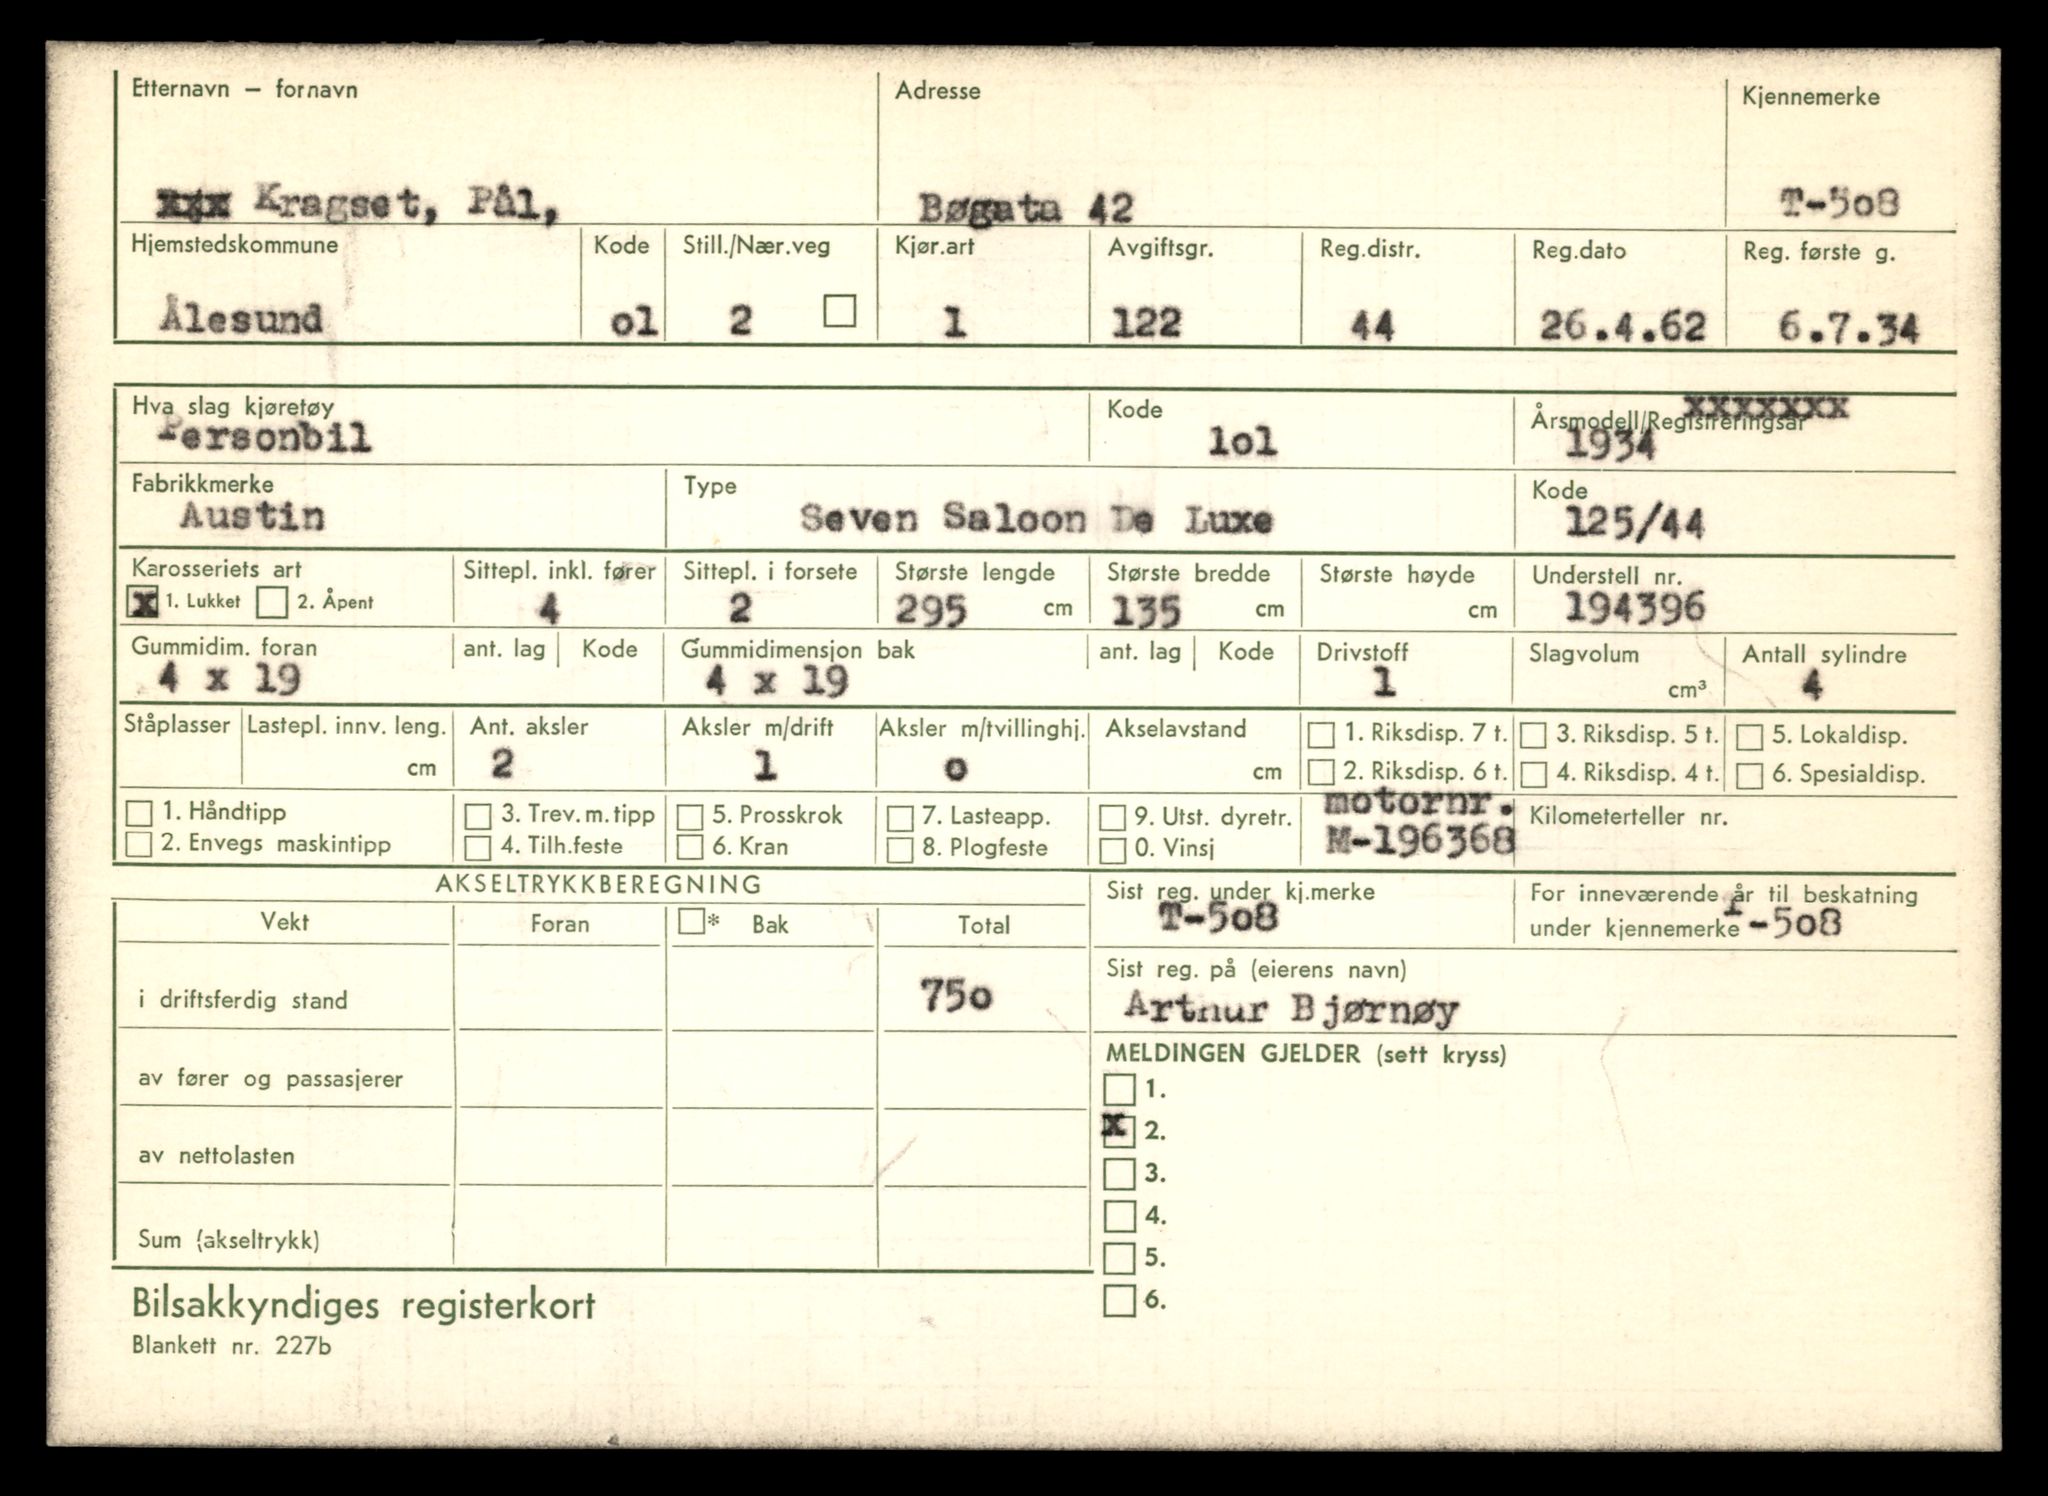 Etternavn – fornavn Adresse Kjennemerke
xxx Kragset, Pål, Bøgata 42 T-5o8
Hjemstedskommune Kode Still./Nær.veg Kjør.art Avgiftsgr. Reg.distr. Reg.dato Reg. første g.
Ålesund ol 2 1 122 44 26.4.62 6.7.34
Hva slag kjøretøy Kode Årsmodell/Registreringsår xxxxxxx
Personbil lol 1934
Fabrikkmerke Type Kode
Austin Seven Saloon De Luxe 125/44
Karosseriets art Sittepl. inkl. fører Sittepl. i forsete Største lengde Største bredde Største høyde Understell nr.
x 1. Lukket 2. Åpent 4 2 295 cm 135 cm cm 194396
Gummidim. foran ant. lag Kode Gummidimensjon bak ant. lag Kode Drivstoff Slagvolum Antall sylindre
4 x 19 4 x 19 1 cm³ 4
Ståplasser Lastepl. innv. leng. Ant. aksler Aksler m/drift Aksler m/tvillinghj. Akselavstand 1. Riksdisp. 7 t. 3. Riksdisp. 5 t. 5. Lokaldisp.
cm 2 1 o cm 2. Riksdisp. 6 t. 4. Riksdisp. 4 t. 6. Spesialdisp.
1. Håndtipp 3. Trev. m. tipp 5. Prosskrok 7. Lasteapp. 9. Utst. dyretr. motornr. Kilometerteller nr.
2. Envegs maskintipp 4. Tilh.feste 6. Kran 8. Plogfeste 0. Vinsj M-196368
AKSELTRYKKBEREGNING
Vekt Foran * Bak Total
i driftsferdig stand 75o
av fører og passasjerer
av nettolasten
Sum (akseltrykk)
Sist reg. under kj.merke
T-5o8
For inneværende år til beskatning
under kjennemerke T-5o8
Sist reg. på (eierens navn)
Arthur Bjørnøy
MELDINGEN GJELDER (sett kryss)
1.
x 2.
3.
4.
5.
6.
Bilsakkyndiges registerkort
Blankett nr. 227b